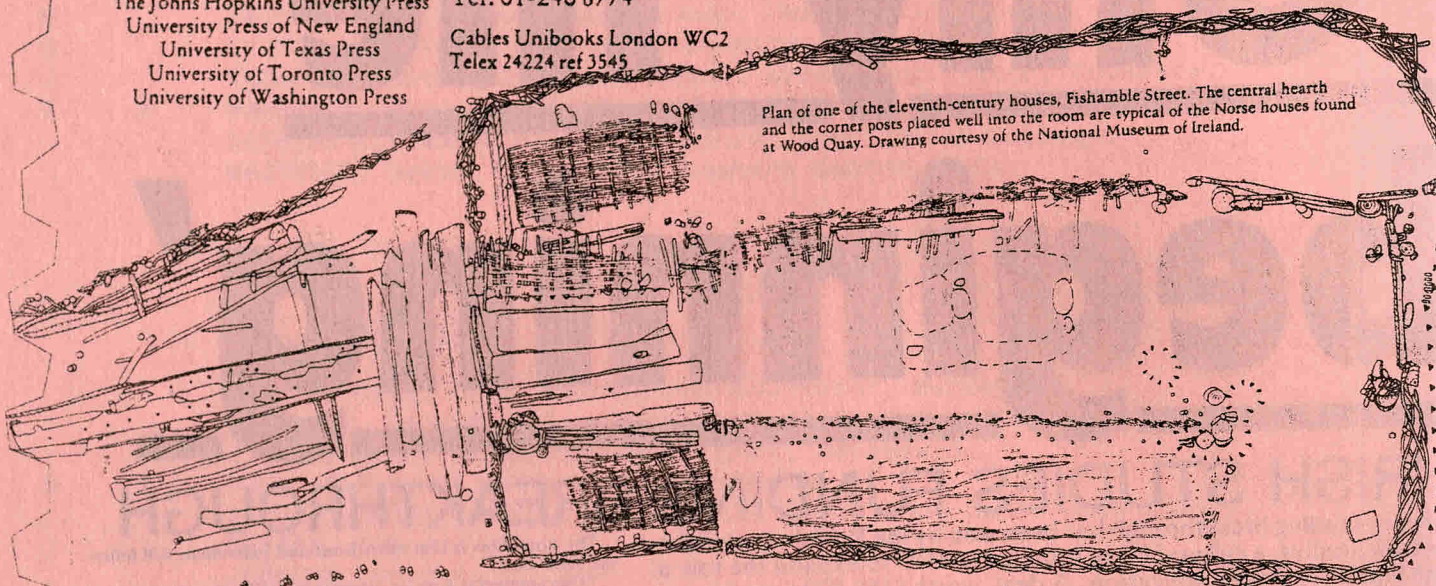 The Johns Hopkins University Press
University Press of New England
University of Texas Press
University of Toronto Press
University of Washington Press
Cables Unibooks London WC2
Telex 24224 ref 3545
Plan of one of the eleventh-century houses, Fishamble Street. The central hearth
and the corner posts placed well into the room are typical of the Norse houses found
at Wood Quay. Drawing courtesy of the National Museum of Ireland.